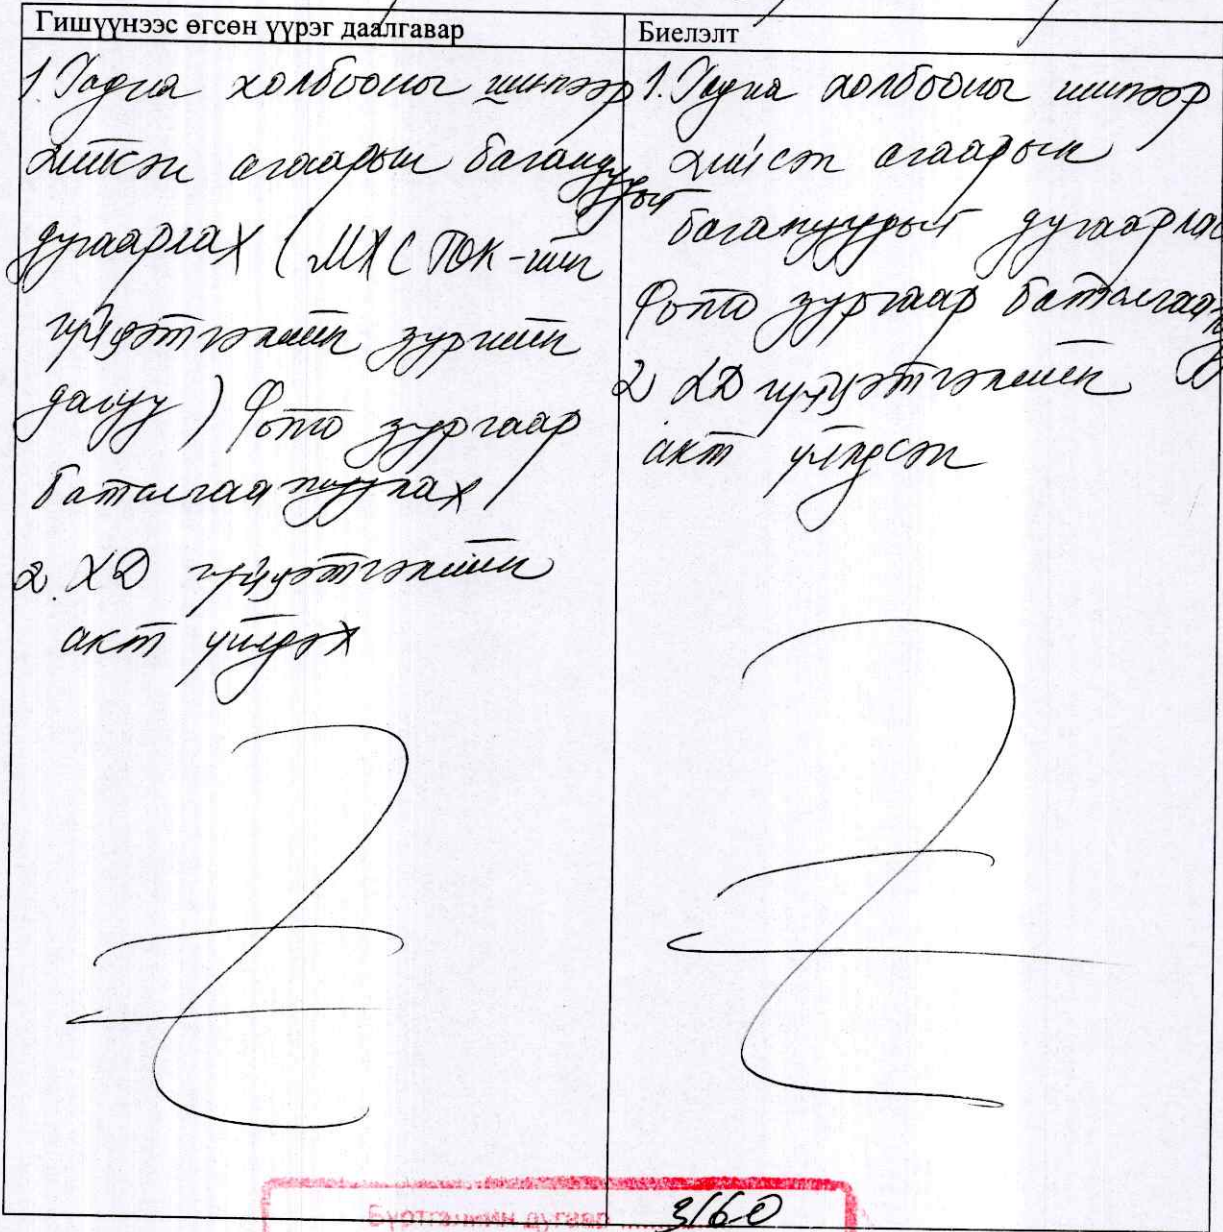 Гишүүнээс өгсөн үүрэг даалгавар
1. Гадна холбооны шинээр
хийсэн агаарын багануудыг
дугаарлах (МХС ТӨК-ийн
гүйцэтгэлийн зургийн
дагуу) Фото зургаар
баталгаажуулах
2. ХД гүйцэтгэлийн
акт үйлдэх
Биелэлт
1. Гадна холбооны шинээр
хийсэн агаарын
багануудыг дугаарлас
Фото зургаар
2 ХД гүйцэтгэлийн
акт үйлдсэн
Бүртгэлийн дугаар 3160